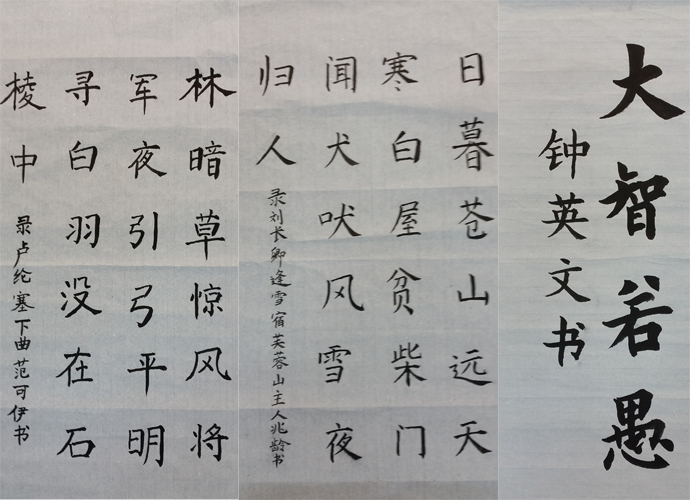 大智若愚
钟英文书
日暮苍山远天
寒白屋贫柴门
闻犬吠风雪夜
归人
录刘长卿逢雪宿芙蓉山主人兆龄书
林暗草惊风将
军夜引弓平明
寻白羽没在石
棱中
录卢纶塞下曲范可伊书